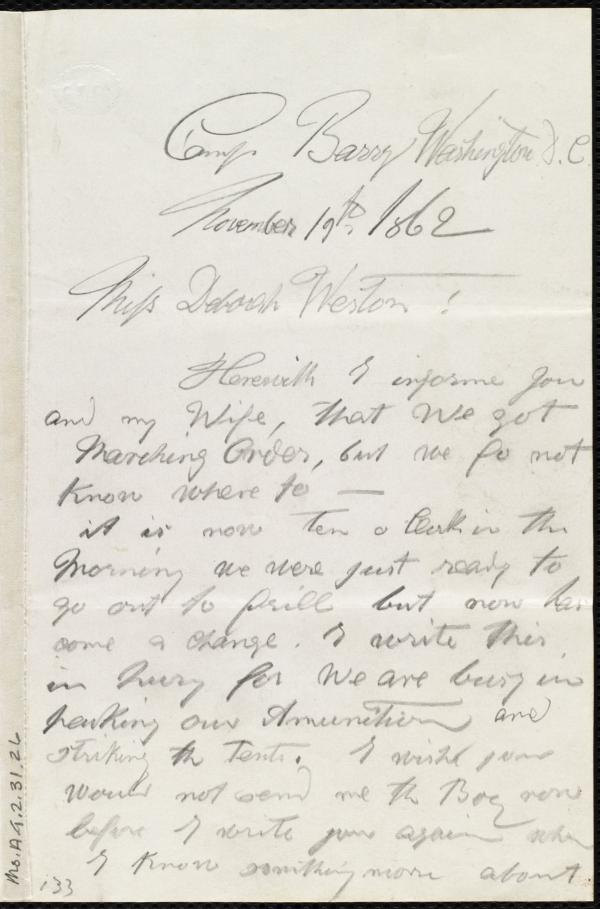 Camp Barry Washington D.C.
November 19th 1862
Miss Deborah Weston!
Herewith I informe you
and my Wife, that We got
Marching Order, but we do not
Know where to —
it is now Ten o Clock in the
Morning we were just ready to
go out to drill but now has
come a change. I write this
in hury for We are busy in
packing our Amunition and
striking the Tents. I wish you
would not send me the Box now
before I write you again when
I Know somthing more about
Ms. A.9.2.31.26
133